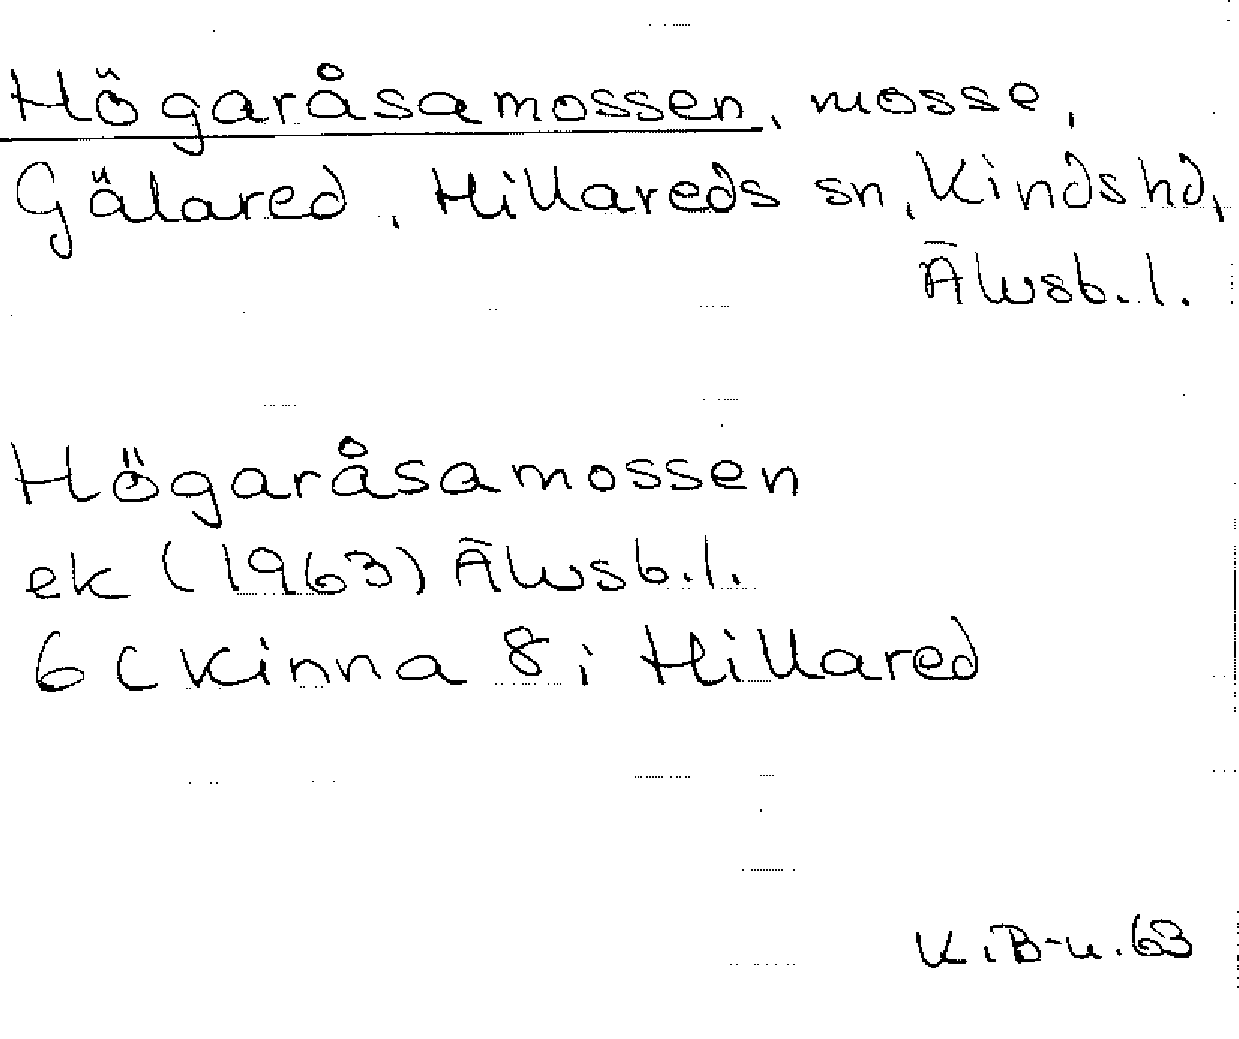 Högaråsamossen, mosse,
Gälared, Hillareds sn, Kinds hd,
Älvsb. l.
Högaråsamossen
ek (1963) Älvsb. l.
6 C Kinna 8 i Hillared
K.B-u. 63